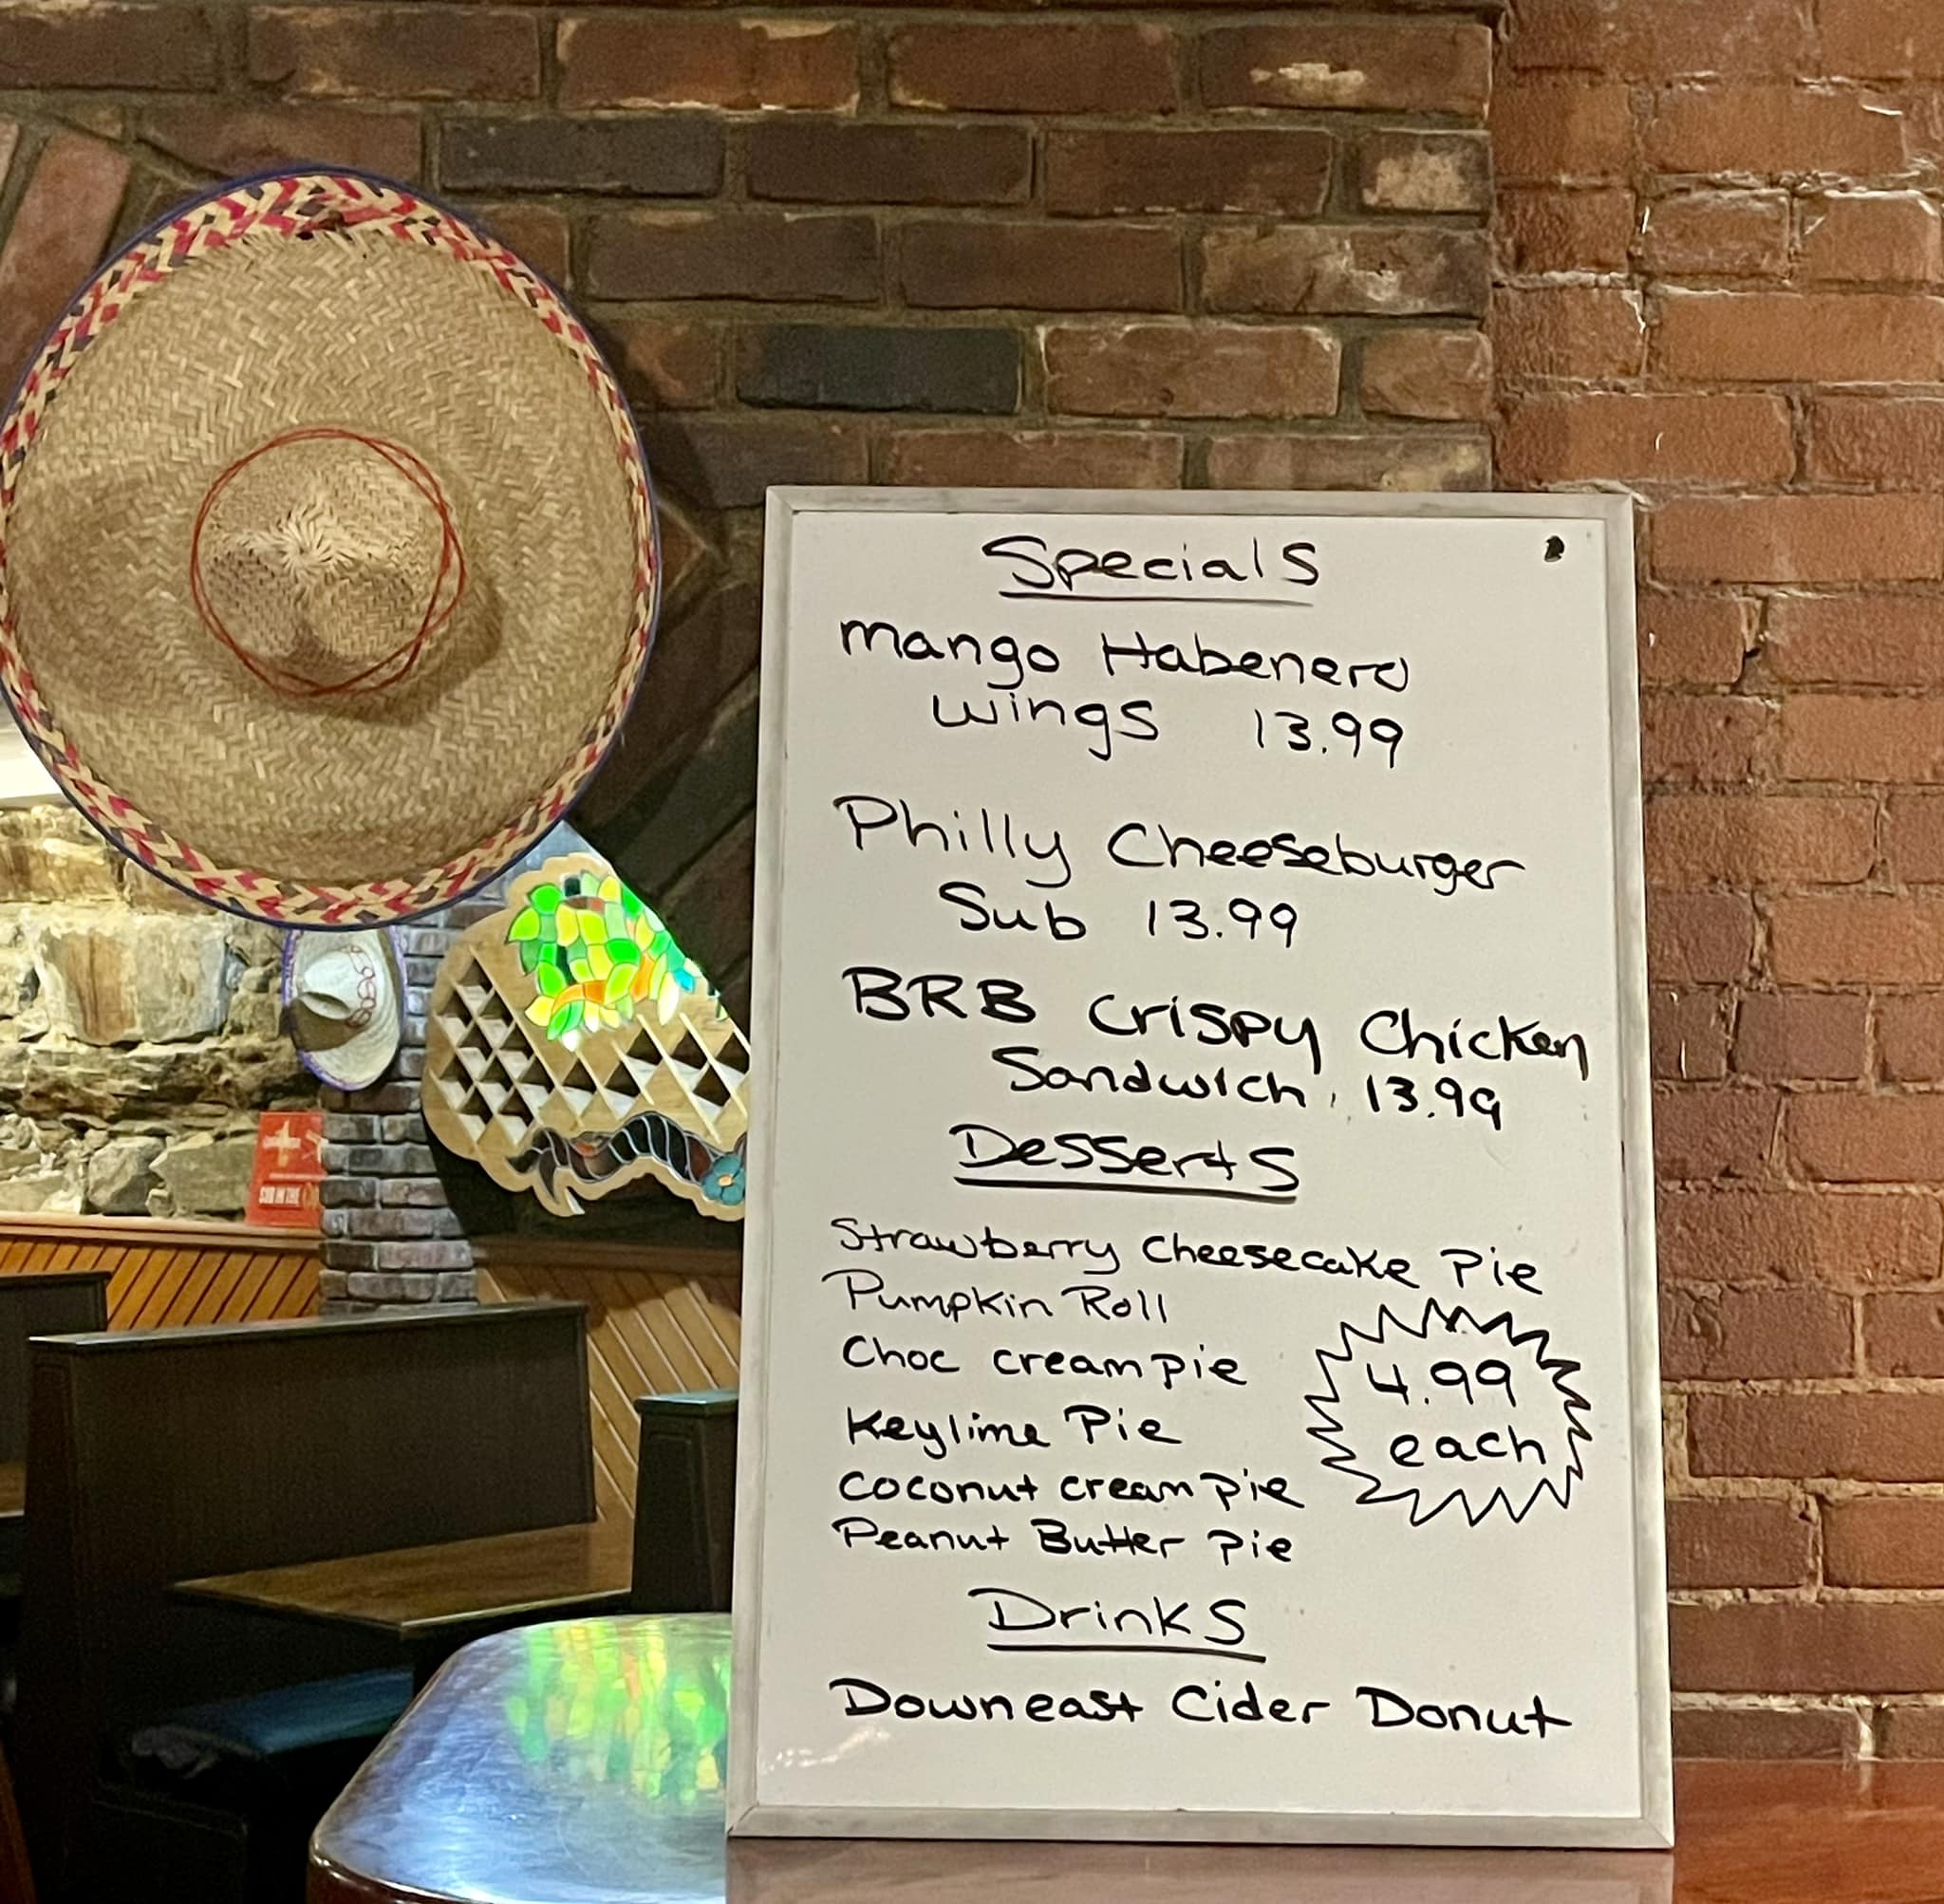 Specials
Mango Habenero
wings 13.99
Philly Cheeseburger
Sub 13.99
BRB Crispy Chicken
Sandwich 13.99
Desserts
Strawberry Cheesecake Pie
Pumpkin Roll
Choc cream pie
Keylime Pie
Coconut cream pie
Peanut Butter Pie
4.99
each
Drinks
Downeast Cider Donut